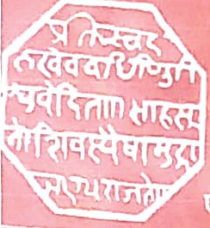 प्रतिपच्चंद्र
लेखेव वर्धिष्णुर्वि
श्ववंदिता॥ शाहसू
नोः शिवस्यैषा मुद्रा
भद्राय राजते